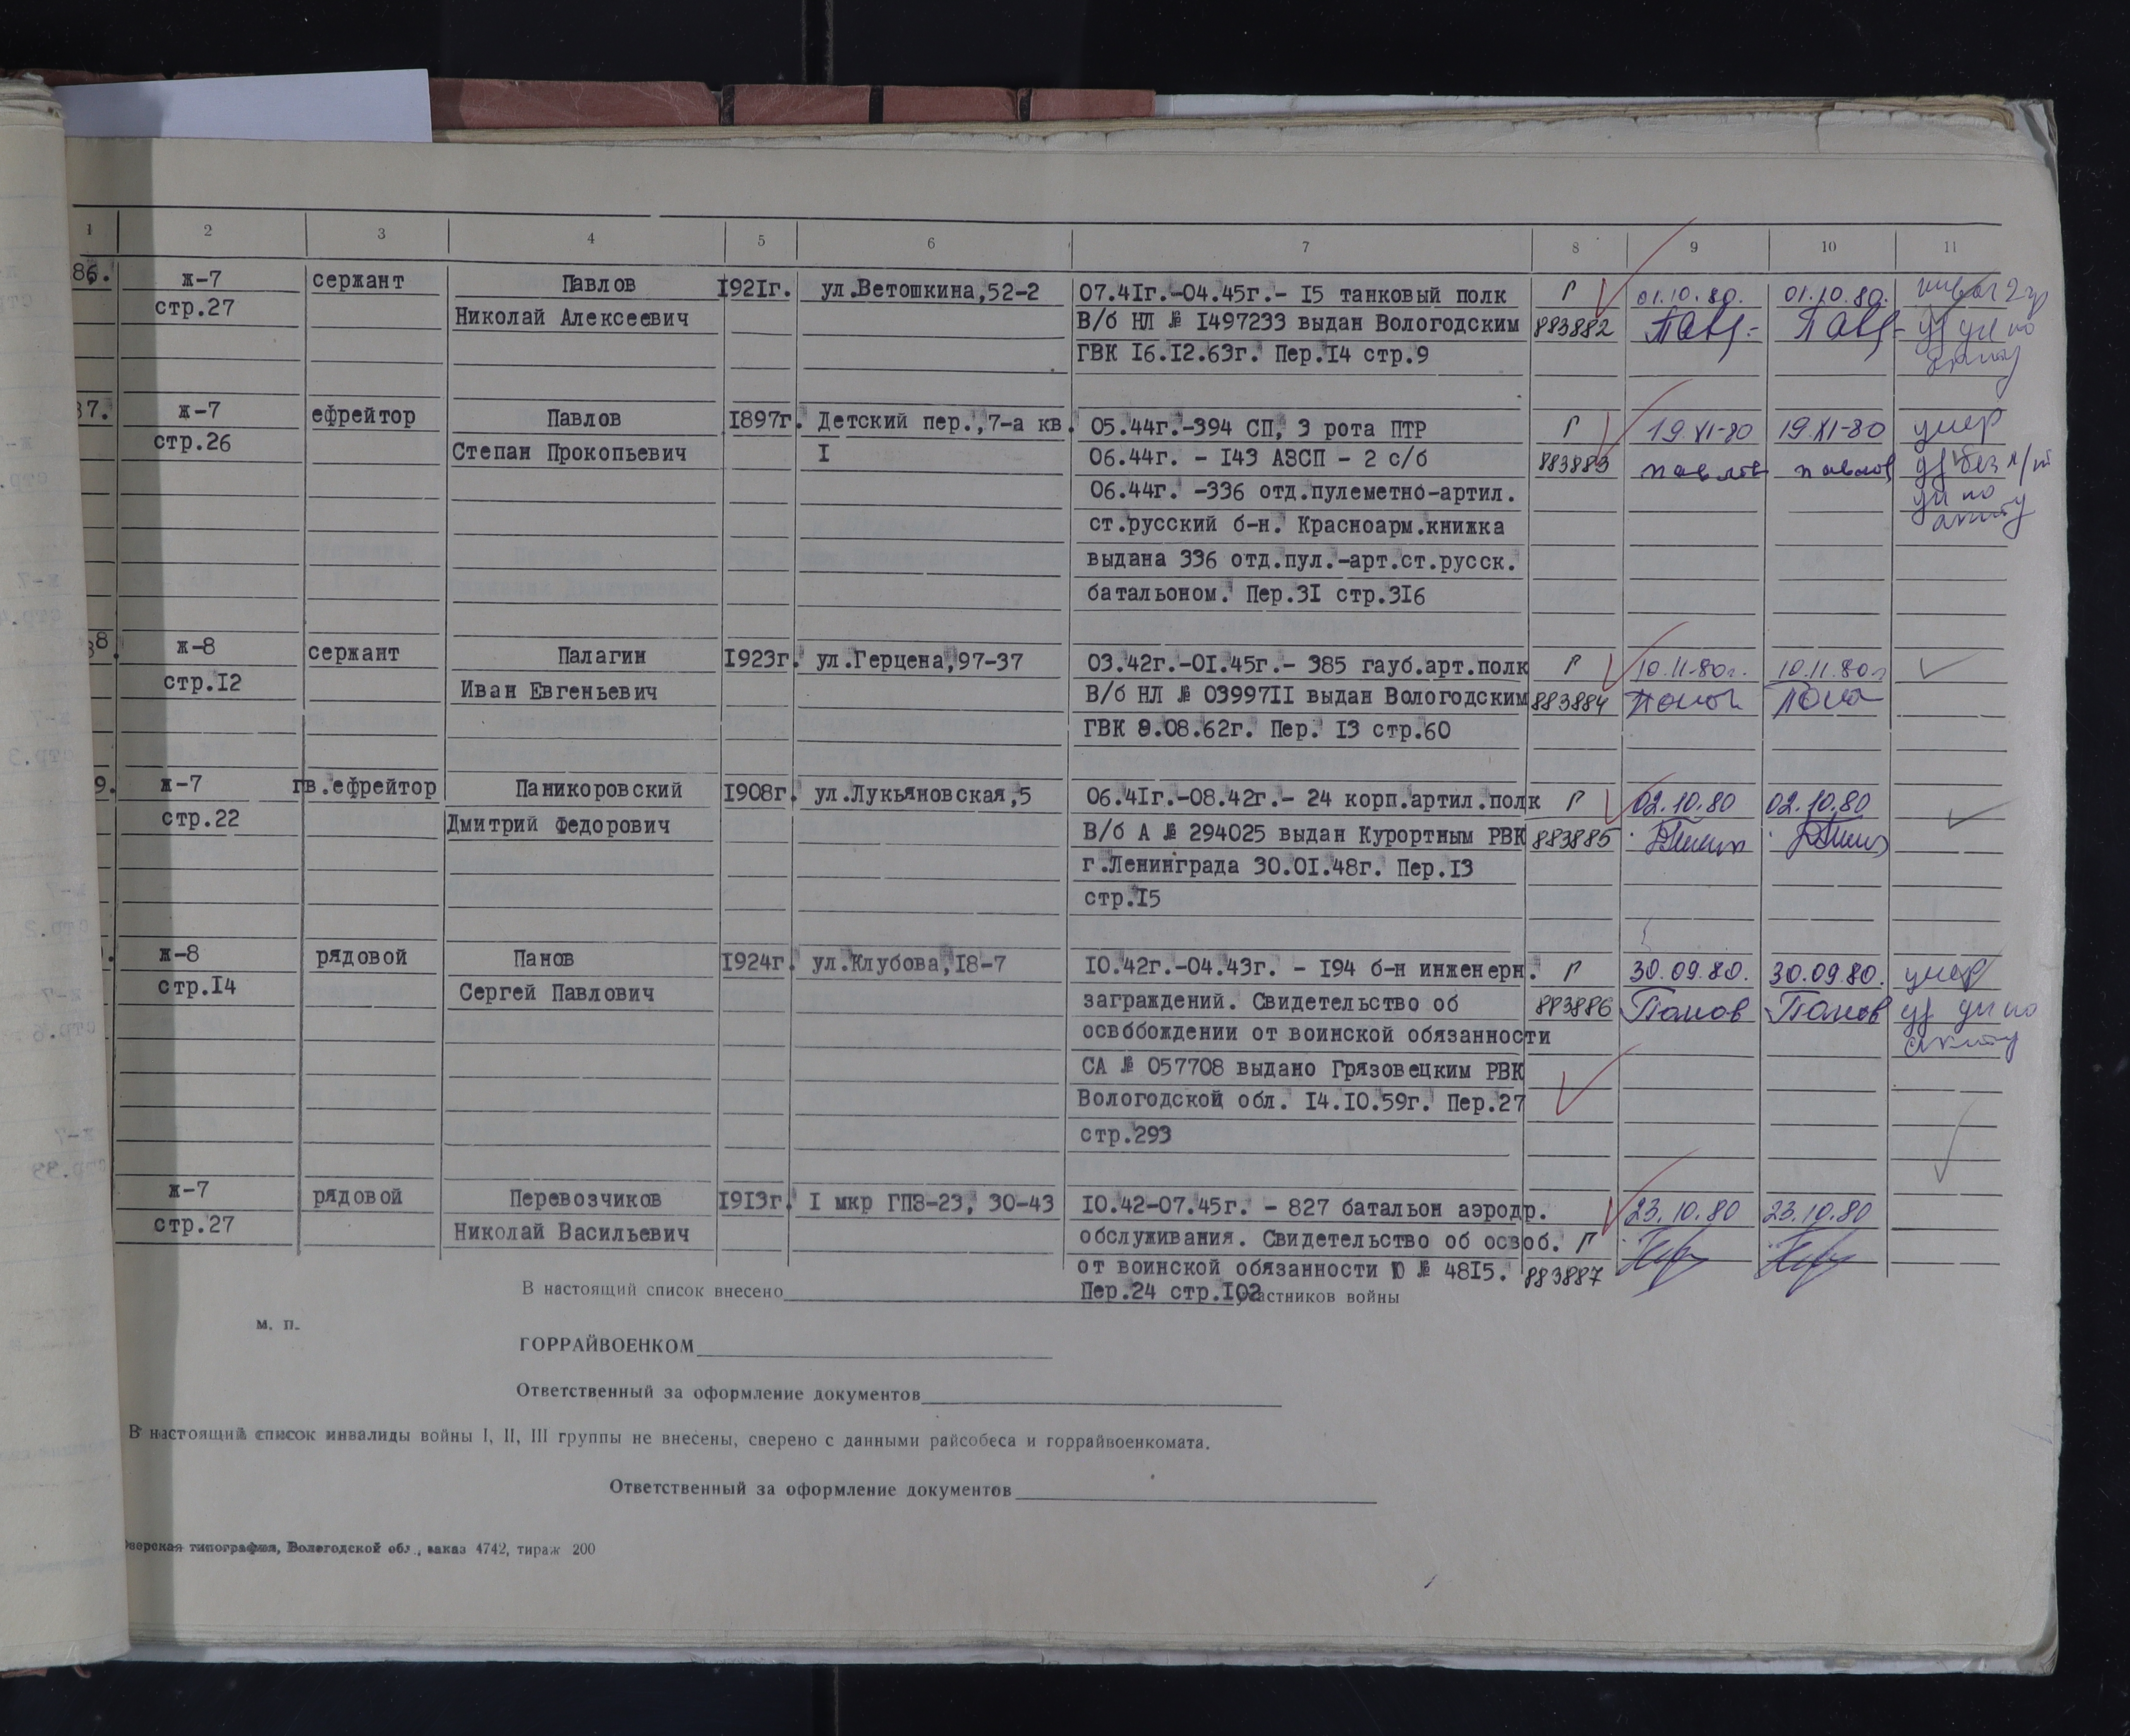 1 2 3 4 5 6 7 8 9 10 11
86. ж-7 сержант Павлов 1921г. ул.Ветошкина,52-2 07.41г.-04.45г.- 15 танковый полк Г 01.10.80. 01.10.80.
стр.27 Николай Алексеевич В/б НЛ № 1497233 выдан Вологодским 883882 Павл.- Павл-
ГВК 16.12.63г. Пер.14 стр.9 акту
87. ж-7 ефрейтор Павлов 1897г. Детский пер.,7-а кв. 05.44г.-394 СП, 3 рота ПТР Г 19.XI-80 19.XI-80 умер
стр.26 Степан Прокопьевич 1 06.44г. - 143 АЗСП - 2 с/б 883883 павлов павлов уд без
06.44г. -336 отд.пулеметно-артил. по
ст.русский б-н. Красноарм.книжка акту
выдана 336 отд.пул.-арт.ст.русск.
батальоном. Пер.31 стр.316
88. ж-8 сержант Палагин 1923г. ул.Герцена,97-37 03.42г.-01.45г.- 385 гауб.арт.полк Г 10.11.80г. 10.11.80г
стр.12 Иван Евгеньевич В/б НЛ № 0399711 выдан Вологодским 883884
ГВК 9.08.62г. Пер. 13 стр.60
9. ж-7 гв.ефрейтор Паникоровский 1908г. ул.Лукьяновская,5 06.41г.-08.42г.- 24 корп.артил.полк Г 02.10.80 02.10.80
стр.22 Дмитрий Федорович В/б А № 294025 выдан Курортным РВК 883885
г.Ленинграда 30.01.48г. Пер.13
стр.15
ж-8 рядовой Панов 1924г. ул.Клубова,18-7 10.42г.-04.43г. - 194 б-н инженерн. Г 30.09.80. 30.09.80. умер
стр.14 Сергей Павлович заграждений. Свидетельство об 883886 Панов Панов уд по
освобождении от воинской обязанности акту
СА № 057708 выдано Грязовецким РВК
Вологодской обл. 14.10.59г. Пер.27
стр.293
ж-7 рядовой Перевозчиков 1913г. 1 мкр ГПЗ-23, 30-43 10.42-07.45г. - 827 батальон аэродр. 23.10.80 23.10.80
стр.27 Николай Васильевич обслуживания. Свидетельство об освоб. Г
от воинской обязанности Ю № 4815. 883887
Пер.24 стр.102
В настоящий список внесено участников войны
м. п.
ГОРРАЙВОЕНКОМ
Ответственный за оформление документов
В настоящий список инвалиды войны I, II, III группы не внесены, сверено с данными райсобеса и горрайвоенкомата.
Ответственный за оформление документов
типография, Вологодской обл., заказ 4742, тираж 200